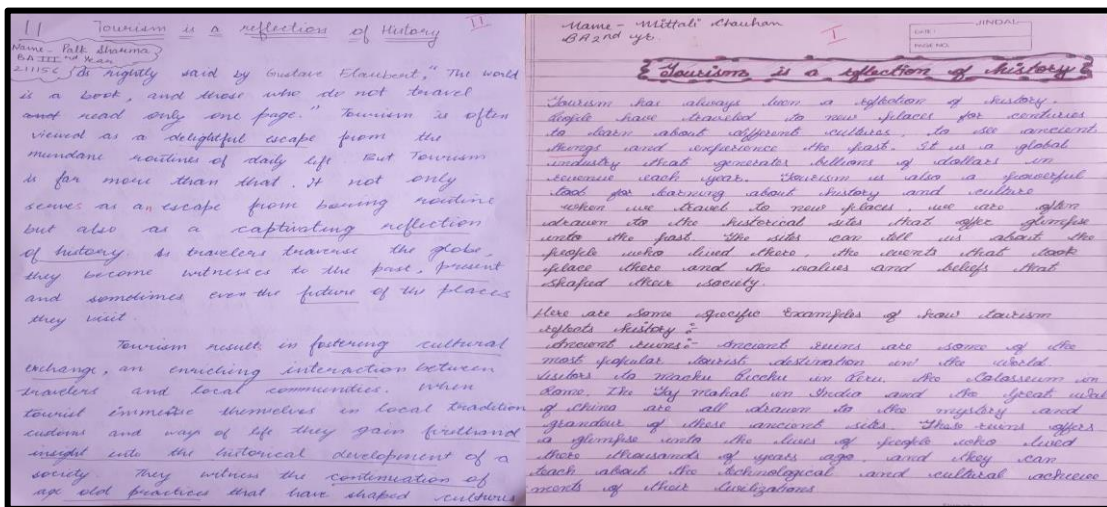 11
Tourism is a reflection of History
II
Name - Palk Sharma
BA III nd Year
211156
As rightly said by Gustave Flaubert, "The world
is a book, and those who do not travel
read only one page." Tourism is often
viewed as a delightful escape from the
mundane routines of daily life. But Tourism
is far more than that. It not only
serves as an escape from boring routine
but also as a captivating reflection
of history. As travelers traverse the globe,
they become witnesses to the past, present
and sometimes even the future of the places
they visit.
Tourism result in fostering cultural
exchange, an enriching interaction between
travelers and local communities. When
tourist immerse themselves in local tradition
customs and ways of life they gain firsthand
insight into the historical development of a
society. They witness the continuation of
age old practices that have shaped cultures
Name - Mittali Chauhan
BA 2nd yr.
I
JINDAL
DATE:
PAGE NO.
Tourism is a reflection of history
Tourism has always been a reflection of history.
People have traveled to new places for centuries
to learn about different cultures, to see ancient
things and experience the past. It is a global
industry that generates billions of dollars in
revenue each year. Tourism is also a powerful
tool for learning about history and culture
when we travel to new places, we are often
drawn to the historical sites that offer glimpse
into the past. The sites can tell us about the
people who lived there, the events that took
place there and the values and beliefs that
shaped their society.
Here are some specific examples of how tourism
reflects history :-
Ancient ruins :- Ancient ruins are some of the
most popular tourist destination in the world.
Visitors to Machu Picchu in Peru, the Colosseum in
Rome, The Taj mahal in India and the Great wall
of china are all drawn to the mystery and
grandeur of these ancient sites. These ruins offers
a glimpse into the lives of people who lived
there thousands of years ago, and they can
teach about the technological and cultural achieve
ments of their civilizations